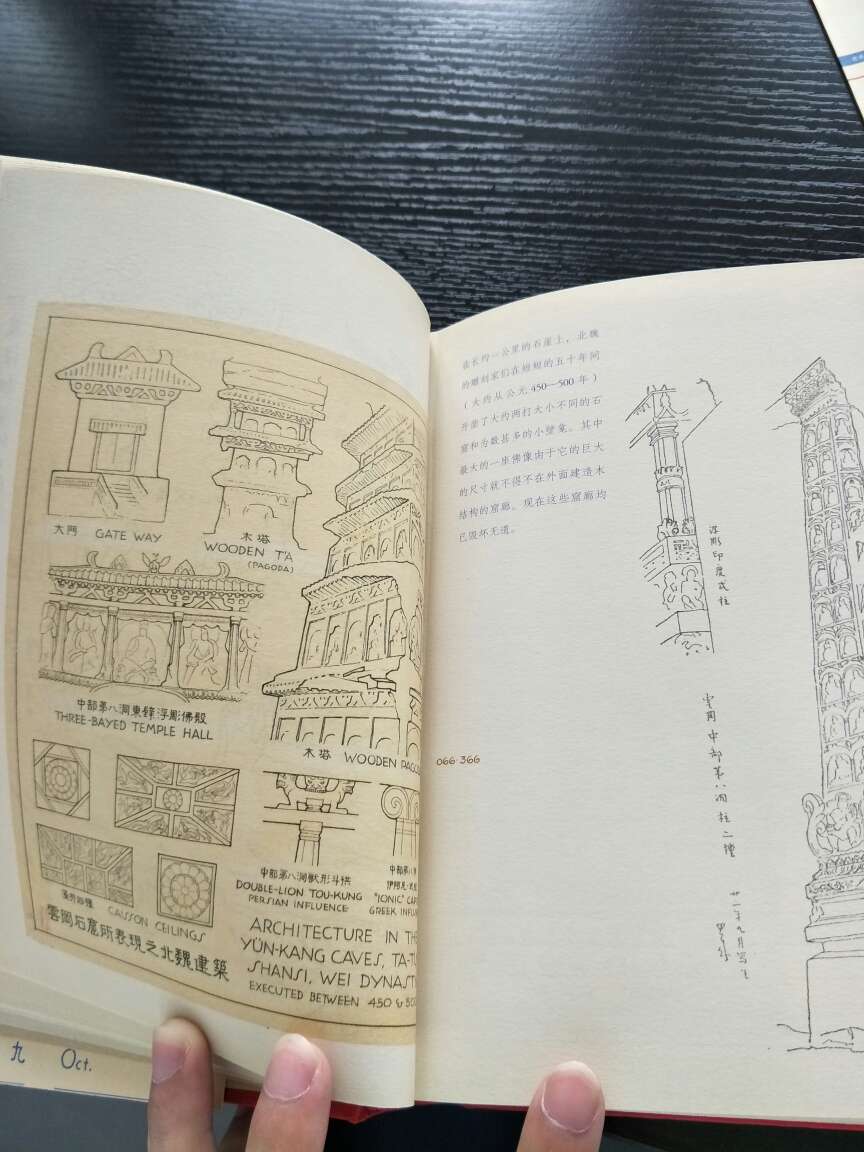 大門 GATE WAY
木塔
WOODEN T'A
(PAGODA)
中部第八洞東壁浮彫佛殿
THREE-BAYED TEMPLE HALL
木塔 WOODEN PAGO
中部第八洞獸形斗栱
DOUBLE-LION TOU-KUNG
PERSIAN INFLUENCE
中部第八
"IONIC" CAP
GREEK INFLU
CAISSON CEILINGS
雲岡石窟所表現之北魏建築
ARCHITECTURE IN THE
YÜN-KANG CAVES, TA-TU
SHANSI, WEI DYNAST
EXECUTED BETWEEN 450 & 500
九 Oct.
在长约一公里的石崖上,北魏
的雕刻家们在短短的五十年间
(大约从公元450—500年)
开凿了大约两打大小不同的石
窟和为数甚多的小壁龛。其中
最大的一座佛像由于它的巨大
的尺寸就不得不在外面建造木
结构的窟廊。现在这些窟廊均
已毁坏无遗。
066 366
浮彫印度式柱
雲岡中部第八洞柱二種
廿一年九月写生